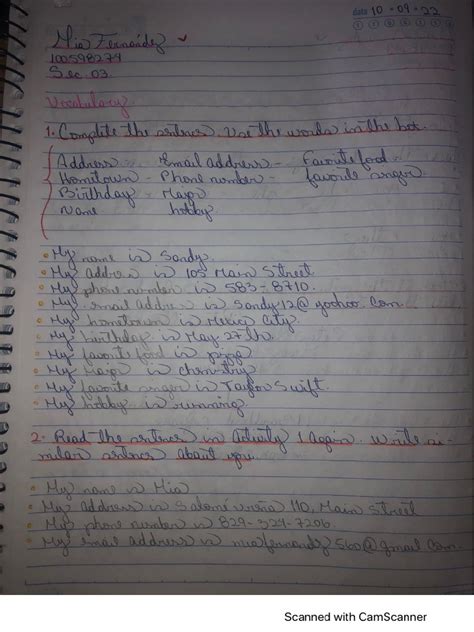 date 10 - 09 - 22
Mia Fernandez
100598279
Sec. 03
Vocabulary
1. Complete the sentences. Use the words in the box.
Address - Email address - Favorite food
Hometown - Phone number - favorite singer
Birthday - Major
Name hobby
• My name is Sandy.
• My address is 103 Main Street.
• My phone number is 583-8710.
• My email address is Sandy12@yoohoo.com.
• My hometown is Mexico City
• My birthday is May 27th.
• My favorite food is pizza
• My major is chemistry
• My favorite singer is Taylor Swift.
• My hobby is running
2. Read the sentences in Activity 1 Again. Write si-
milar sentences about you.
• My name is Mia
• My Address is Salomé ureña 110, Main Street
• My phone number is 829-524-7206.
• My email address is miafernandz560@gmail.com.
Scanned with CamScanner